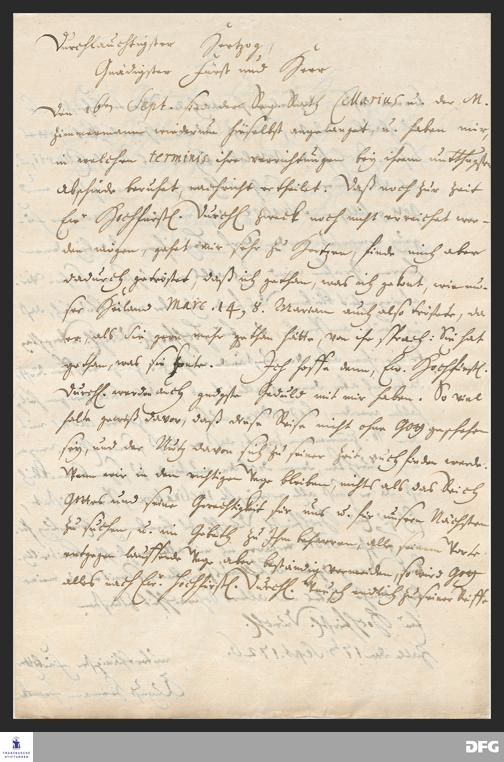 Durchlauchtigster Hertzog,
Gnädigster Fürst und Herr
Den 16ten Sept. sind der Rath Cellarius u. der M.
Zimmermann wiederum hieselbst angelanget, u. haben mir,
in welchen terminis ihre verrichtungen bey ihrem
abschiede beruhet, nachricht ertheilet. Daß noch zur Zeit
Eur Hochfürstl. Durchl. Zweck noch nicht erreichet wer-
den mögen, gehet mir sehr zu Hertzen, finde mich aber
dadurch getröstet, daß ich gethan, was ich gekont, wie un-
ser Heiland Marc. 14, 8. Mariam auch also tröstete, da
er, als Sie gern mehr gethan hätte, von ihr sprach: Sie hat
gethan, was sie konte. Ich hoffe denn, Ew. Hochfürstl.
Durchl. werden auch gndgste Geduld mit mir haben. So viel
halte gewiß davor, daß diese Reise nicht ohne Gott geschehen
sey, und der Nutz davon sich zu seiner Zeit auch finden werde.
Wenn wir in den richtigen Wege bleiben, nichts als das Reich
Gottes und seine Gerechtigkeit für uns u. für unsern Nächsten
zu suchen, u. im Gebeth zu Ihm beharren, alle seinem Worte
entgegen lauffende Wege aber beständig vermeiden, so wird Gott
alles nach Eur Hochfürstl. Durchl. Wunsch endlich zu seiner Hülffe
FRANCKESCHE STIFTUNGEN
DFG